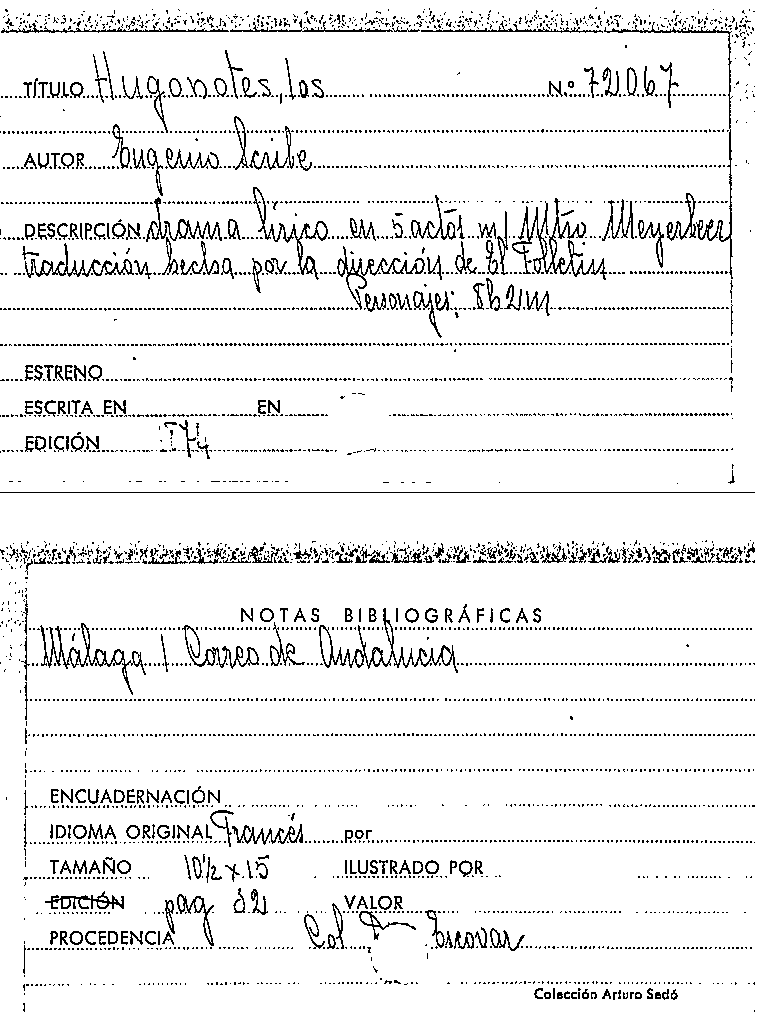 TÍTULO Hugonotes, los N.º 72067
AUTOR Eugenio Scribe
DESCRIPCIÓN drama lírico en 5 actos m/ Mtro Meyerbeer
traducción hecha por la dirección de El Folletin
Personajes: 8h 2m
ESTRENO
ESCRITA EN EN
EDICIÓN
NOTAS BIBLIOGRÁFICAS
Málaga / Correo de Andalucia
ENCUADERNACIÓN
IDIOMA ORIGINAL Francés por
TAMAÑO 10½ x 15 ILUSTRADO POR
EDICIÓN pag VALOR
PROCEDENCIA Col Escovar
Colección Arturo Sedó